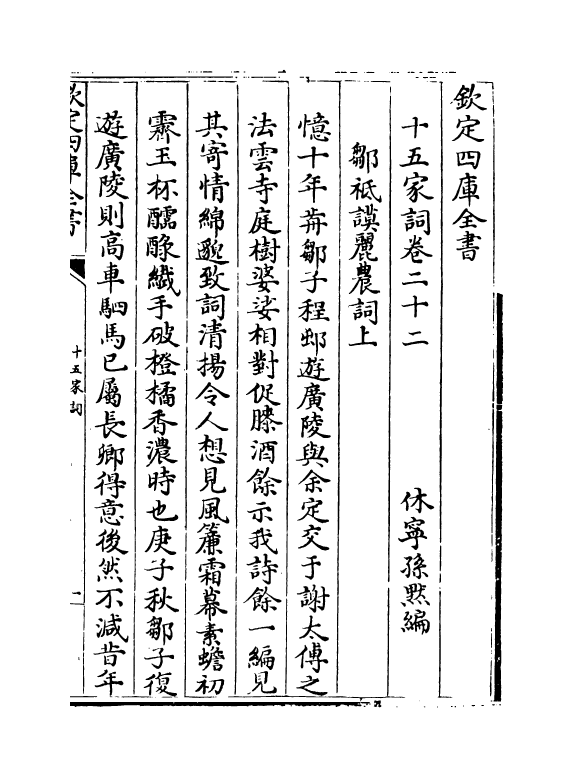 欽定四庫全書
十五家詞卷二十二
休寧孫黙編
鄒祗謨麗農詞上
憶十年前鄒子程邨遊廣陵與余定交于謝太傅之
法雲寺庭樹婆娑相對促膝酒餘示我詩餘一編見
其寄情綿邈致詞清揚令人想見風簾霜幕素蟾初
霽玉杯醽醁纎手破橙橘香濃時也庚子秋鄒子復
遊廣陵則高車駟馬已屬長卿得意後然不減昔年
欽定四庫全書
十五家詞